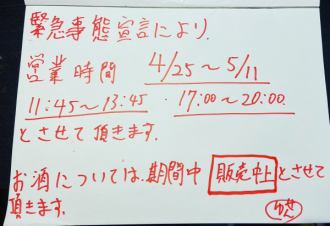 緊急事態宣言により、
営業時間 4/25〜5/11
11:45〜13:45 ・ 17:00〜20:00
とさせて頂きます。
お酒については、期間中 販売中止 とさせて
頂きます。